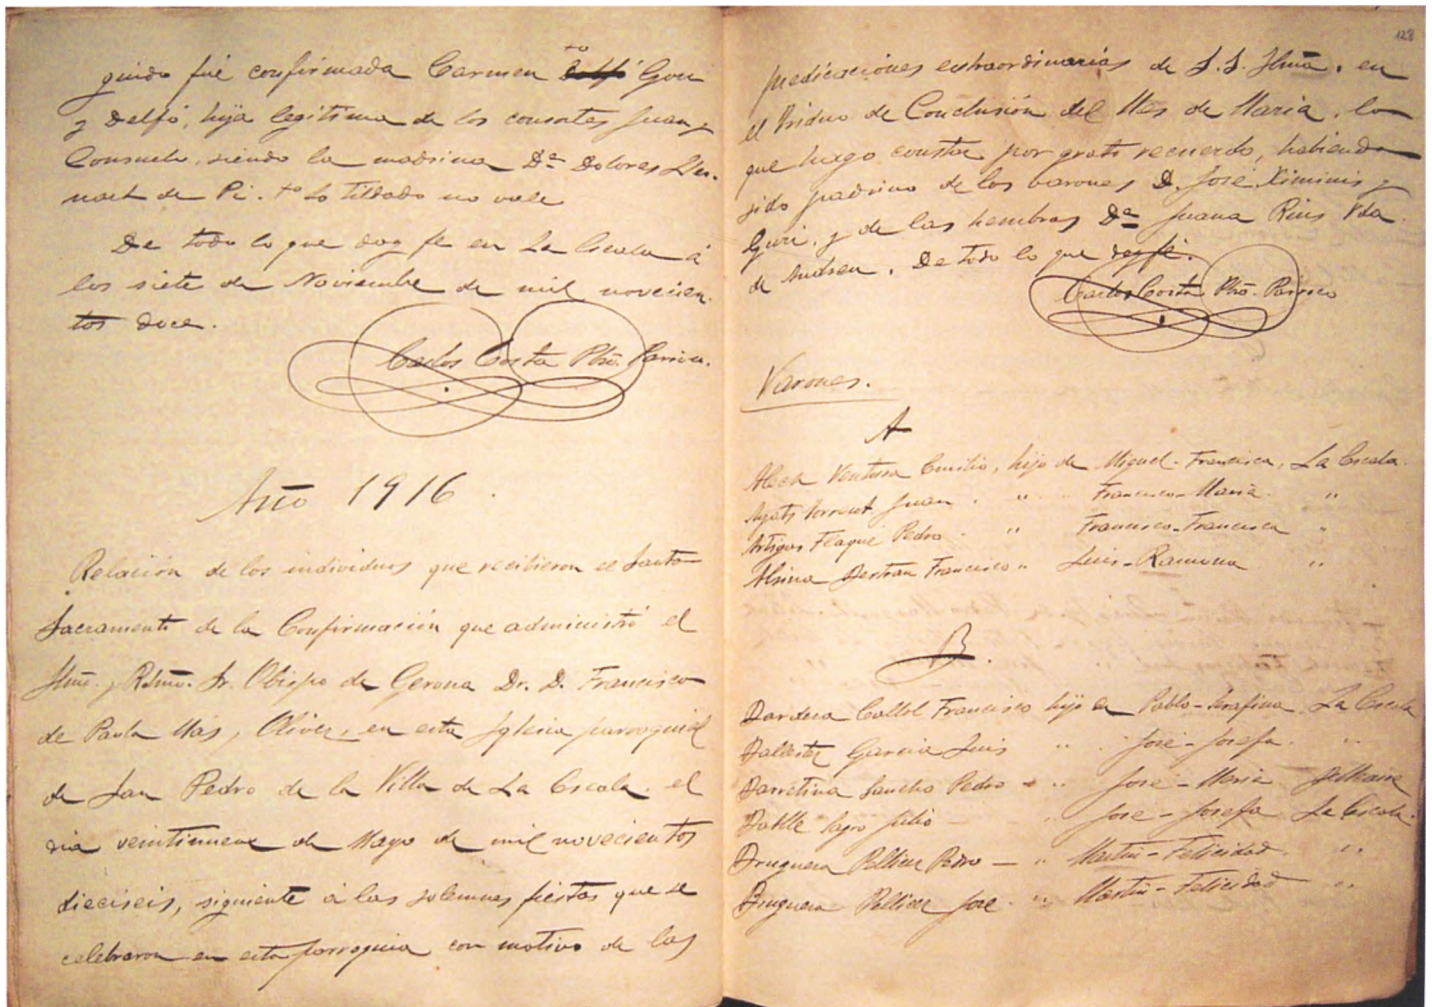 guido fué confirmada Carmen Gou
y Delfó, hija legítima de los consortes Juan y
Consuelo, siendo la madrina Dª Dolores Llu-
nach de Pi. to Lo tildado no vale
De todo lo que doy fe en La Escala á
los siete de Noviembre de mil novecien-
tos doce.
Carlos Costa Pbro. Párroco.
Año 1916.
Relación de los individuos que recibieron el Santo
Sacramento de la Confirmación que administró el
Ilmo. y Rdmo. Sr. Obispo de Gerona Dr. D. Francisco
de Paula Mas y Oliver, en esta Iglesia parroquial
de San Pedro de la Villa de La Escala, el
dia veintinueve de Mayo de mil novecientos
dieciseis, siguiente á las solemnes fiestas que se
celebraron en esta parroquia con motivo de las
128
predicaciones extraordinarias de S. S. Ilma. en
el Triduo de Conclusión del Mes de Maria, lo
que hago constar por grato recuerdo, habiendo
sido padrino de los varones D. José y
Guri, y de las hembras Dª Juana Rius Vda.
de . De todo lo que doy fé.
Carlos Costa Pbro. Párroco
Varones.
A
Ventura Emilio, hijo de Miguel-Francisca, La Escala.
Juan. " Francisco-Maria. "
Artigas Flaqué Pedro. " Francisco-Francisca "
Alsina Bertran Francisco " Luis-Ramona "
B.
Bardera Callol Francisco hijo de Pablo-Serafina La Escala
Garcia Luis " José-Josefa. "
Barretina Sancho Pedro - " José-Maria Bellcaire
Batlle Julio - " José-Josefa La Escala.
Bruguera Pellicer Pedro - " Martin-Felicidad. "
Bruguera Pellicer José. " Martin-Felicidad "